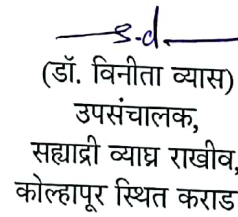 s.d.
(डॉ. विनीता व्यास)
उपसंचालक,
सह्याद्री व्याघ्र राखीव,
कोल्हापूर स्थित कराड